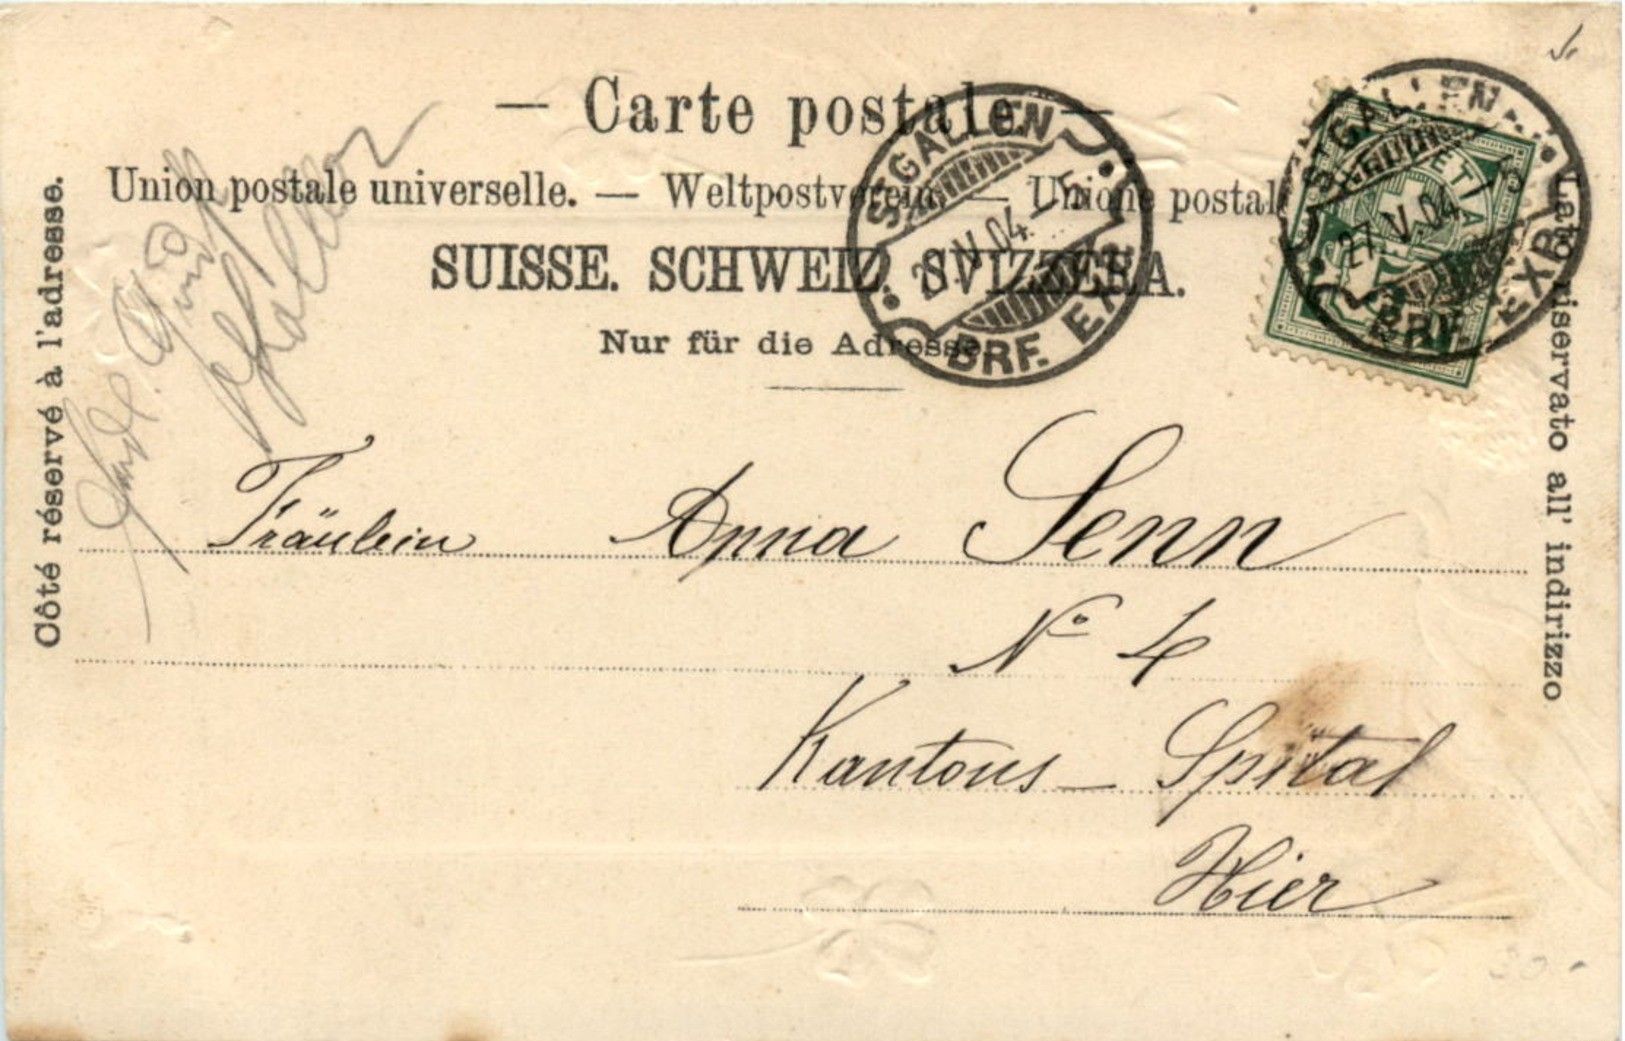 — Carte postale. —
Union postale universelle. — Weltpostverein. — Unione postale
SUISSE. SCHWEIZ. SVIZZERA.
Nur für die Adresse.
Côté réservé à l'adresse.
Lato riservato all' indirizzo
ST. GALLEN
27.V.04.
BRF. EXP.
ST. GALLEN
27.V.04.
BRF. EXP.
Fräulein Anna Senn
No 4
Kantons-Spital
Hier
30.